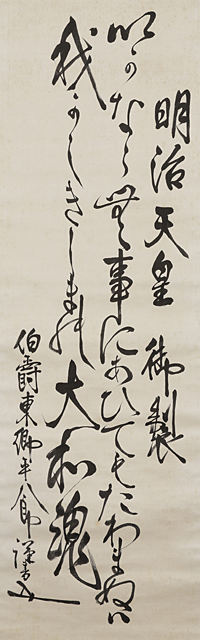 明治天皇 御製
いかならむ事にあひてもたわまぬハ
我かしきしまの大和魂
伯爵東郷平八郎謹書